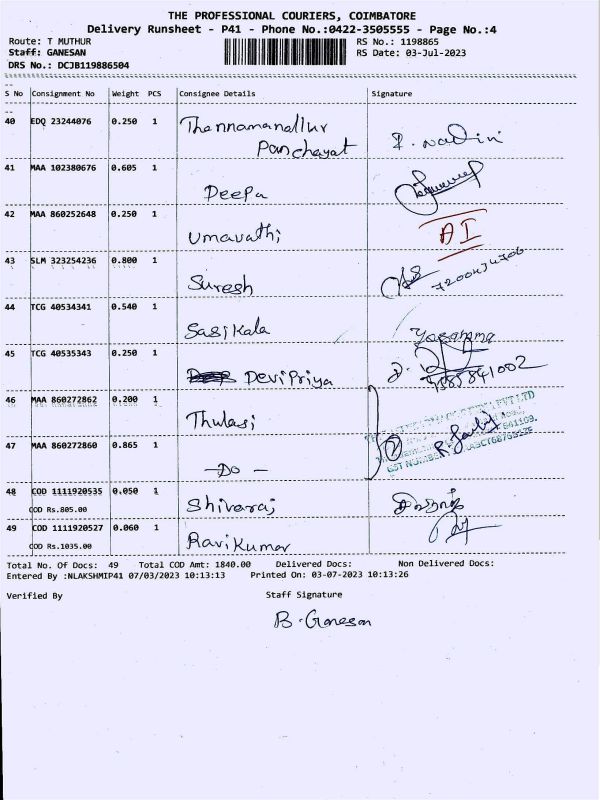 THE PROFESSIONAL COURIERS, COIMBATORE
Delivery Runsheet - P41 - Phone No.:0422-3505555 - Page No.:4
Route: T MUTHUR RS No.: 1198865
Staff: GANESAN RS Date: 03-Jul-2023
DRS No.: DCJB119886504
S No Consignment No Weight PCS Consignee Details Signature
40 EDQ 23244076 0.250 1 Thennamanallur
Panchayat
41 MAA 102380676 0.605 1
Deepa
42 MAA 860252648 0.250 1
Umavathi AI
43 SLM 323254236 0.800 1
Suresh
44 TCG 40534341 0.540 1
Sasikala
45 TCG 40535343 0.250 1
Devipriya
46 MAA 860272862 0.200 1
Thulasi
47 MAA 860272860 0.865 1
- Do -
48 COD 1111920535 0.050 1
COD Rs.805.00 Shivaraj
49 COD 1111920527 0.060 1
COD Rs.1035.00 Ravikumar
Total No. Of Docs: 49 Total COD Amt: 1840.00 Delivered Docs: Non Delivered Docs:
Entered By :NLAKSHMIP41 07/03/2023 10:13:13 Printed On: 03-07-2023 10:13:26
Verified By Staff Signature
B. Ganesan